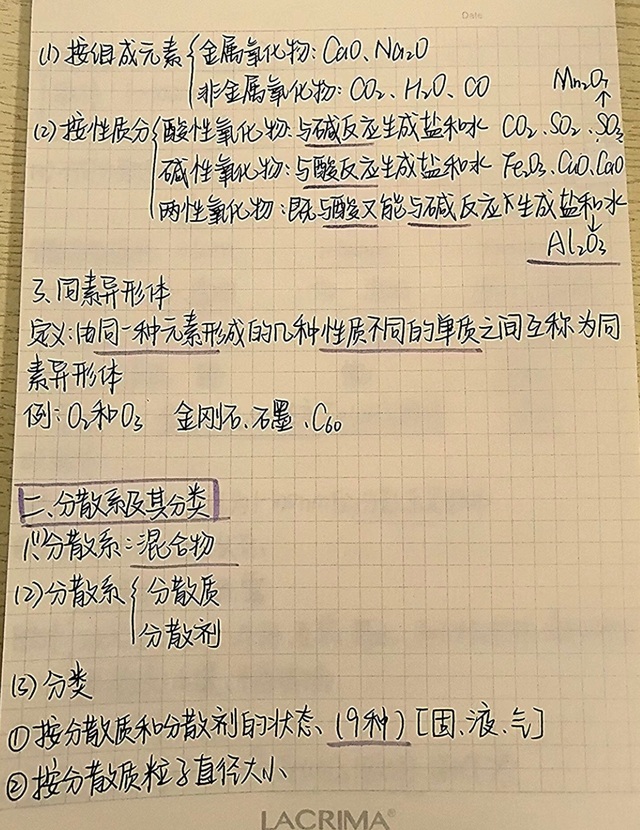 Date
(1) 按组成元素{金属氧化物：CaO、Na₂O
非金属氧化物：CO₂、H₂O、CO
Mn₂O₇
↑
(2) 按性质分{酸性氧化物：与碱反应生成盐和水 CO₂、SO₂、SO₃
碱性氧化物：与酸反应生成盐和水 Fe₂O₃、CuO、CaO
两性氧化物：既与酸又能与碱反应生成盐和水
↓
Al₂O₃
3、同素异形体
定义：由同一种元素形成的几种性质不同的单质之间互称为同
素异形体
例：O₂和O₃ 金刚石、石墨、C₆₀
二、分散系及其分类
(1)分散系：混合物
(2)分散系{分散质
分散剂
(3)分类
①按分散质和分散剂的状态、(9种)[固、液、气]
②按分散质粒子直径大小
LACRIMA®